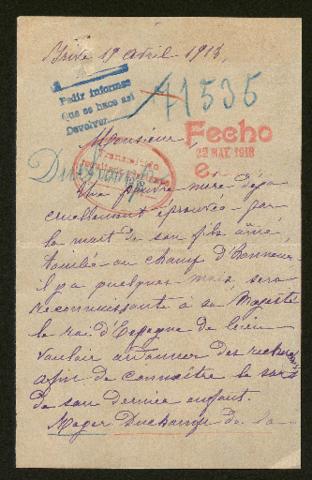 Brive 19 avril 1918,
Pedir informes
Que se hace así
Devolver
A1535
Monsieur,
Fecho
22 MAY. 1918
Une pauvre mère, déja
cruellement éprouvée par
la mort de son fils aîné,
tombé au champ d'Honneur
il y a quelques mois, sera
reconnaissante à sa Majesté
le roi d'Espagne de bien
vouloir ordonner des recherches
afin de connaître le sort
de son dernier enfant.
Roger Duchamp de la